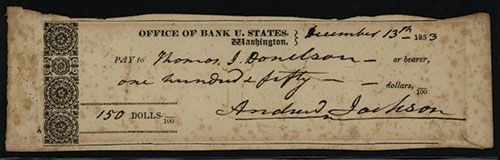 OFFICE OF BANK U. STATES. } December 13th 1833
Washington.
PAY to Thomas J. Donelson — or bearer,
one hundred & fifty — — dollars, /100
150 DOLLS. /100 Andrew Jackson